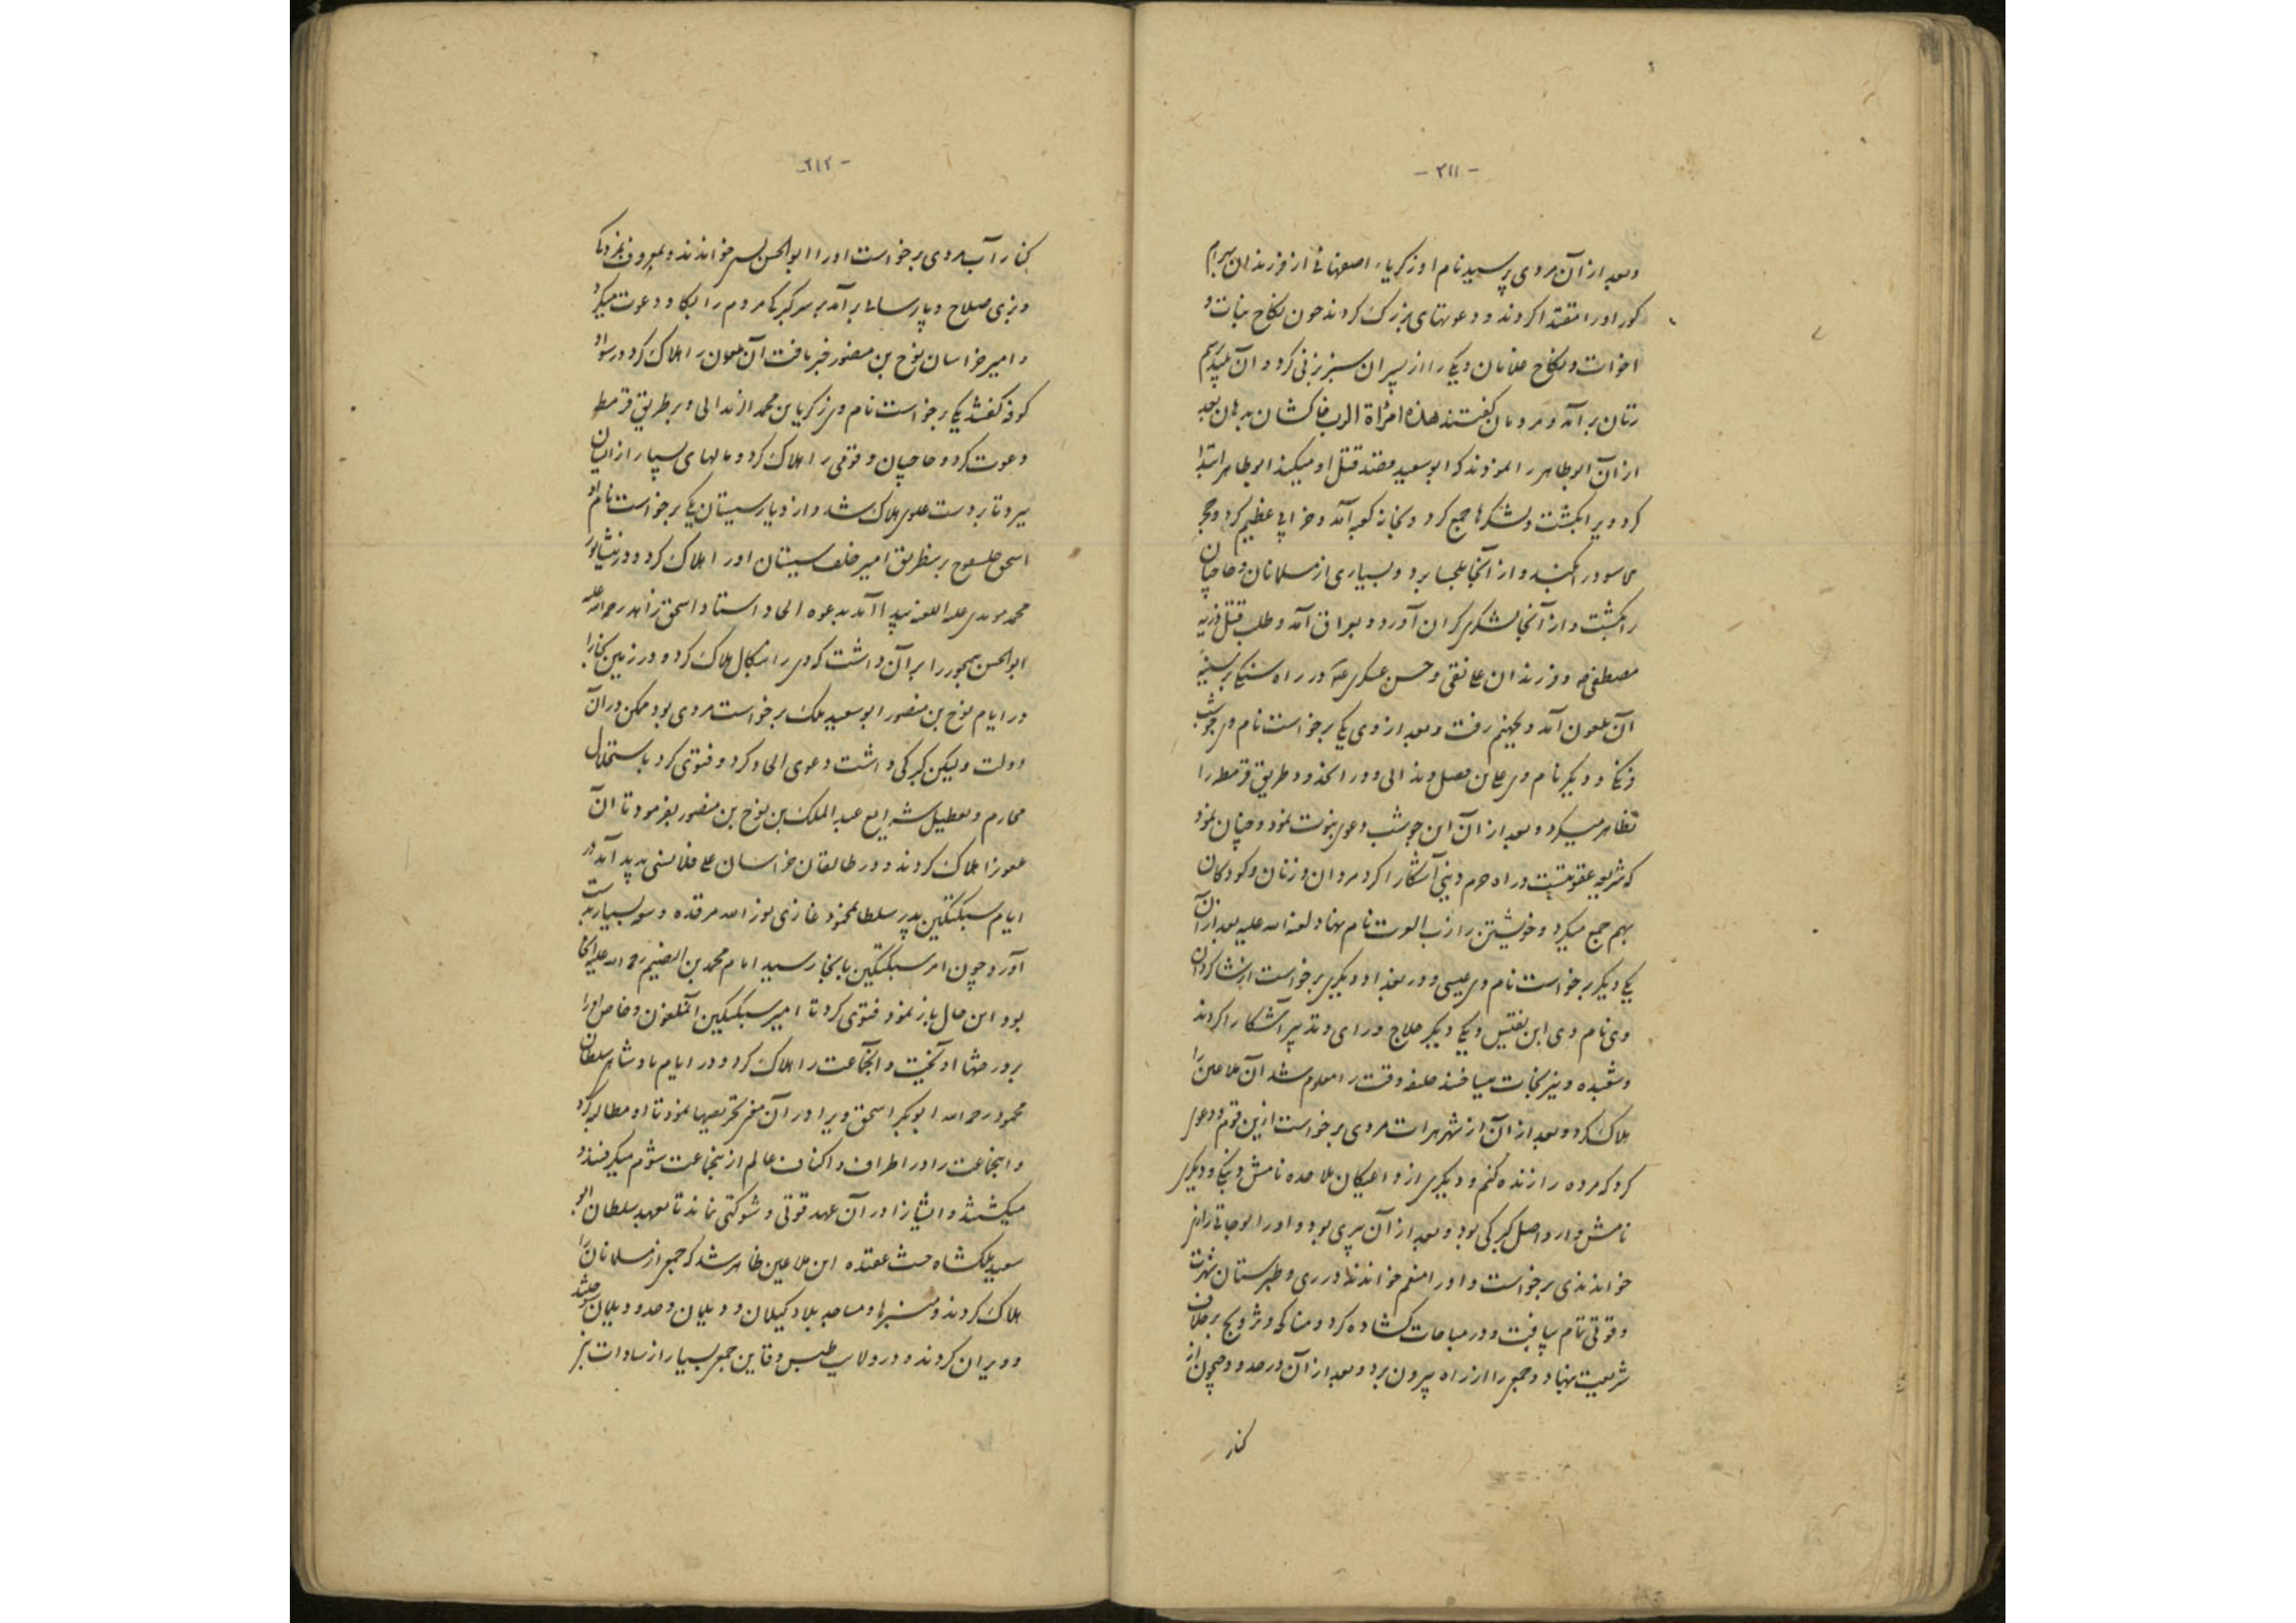 - ٣١١ -
وبعد از آن مردی پرسید نام او زکریاء اصفهانی از فرزندان بهرام
کور او را مقتدا کردند و دعوتهای بزرک کردند چون نکاح بنات و
اخوات و نکاح غلامان و یکی را از پسران بزنی کرد و آن
زنان برآمد و مردمان کفتند هذه امرأة الرب خاکشان بدهان بعد
از آن ابوطاهر را نمودند که ابوسعید قصد قتل او میکند ابوطاهر ابتدا
کرد ویرا بکشت و لشکرها جمع کرد و بخانه کعبه آمد و خرابی عظیم کرد و حجر
الاسود را بکند و از آنجا بلحسا برد و بسیاری از مسلمانان و حاجیان
را بکشت و از آنجا لشکری کران آورد و بعراق آمد و طلب قتل ذریه
مصطفی و فرزندان علی نقی و حسن عسکری در راه سنکی بر سینه
آن ملعون آمد و بجهنم رفت وبعد از وی یکی برخواست نام وی جوشب
و دیکر نام وی علی بن فضل و طریق قرمطه را
تظاهر میکرد و بعد از آن ابن جوشب دعوی نبوت نمود و چنان نمود
که شریعه عقوبتست و راه خرم دینی آشکارا کرد مردان و زنان و کودکان
بهم جمع میکرد و خویشتن را رب العزت نام نهاد لعنه الله علیه بعد از آن
یکی دیکر برخواست نام وی عیسی و در بغداد دیکری برخواست
وی نام وی ابن نفیس و یکی دیکر حلاج و رای و تدبیر آشکارا کردند
و شعبده و نیرنجات میساختند خلیفه وقت را معلوم شد آن ملاعین را
هلاک کرد و بعد از آن از شهر هرات مردی برخواست ازین قوم و دعوی
کرد که مرده را زنده کنم و دیکری از داعیان ملاحده نامش و دیکری
نامش و ار داصل کبرکی بود و بعد از آن سری بود و او را ابوحاتم رازی
خواندندی برخواست و او را منعم خواندند در ری و طبرستان شهرت
و قوتی تمام یافت و در مباحات کشاده کرد و مناکحه و تزویج بر خلاف
شریعت نهاد و جمعی را از راه بیرون برد و بعد از آن در حدود جیحون از
کنار
- ٣١٢ -
کنار آب مردی برخواست او را ابوالحسن خواندند و بمعروف
و بزی صلاح و پارسائی برآمد بر سر کبرکی مردم را بکا و دعوت میکرد
و امیر خراسان نوح بن منصور خبر یافت آن ملعون را هلاک کرد در سواد
کوفه یکی برخواست نام وی زکریا بن محمد و بر طریق قرمطه
دعوت کرد و حاجیان و قومی را هلاک کرد و مالهای بسیار از ایشان
ببرد تا بر دست علوی هلاک شد و از دیار سیستان یکی برخواست نام او
اسحق امیر خلف سیستان او را هلاک کرد و در نیشابور
محمد علیه اللعنه پیدا آمد بدعوه الحاد استاد اسحق زاهد رحمة الله علیه
ابوالحسن سیمجور را بر آن داشت که وی را بنکال هلاک کرد و در زمین بخارا
در ایام نوح بن منصور ابوسعید ملک برخواست مردی بود ممکن در آن
دولت ولیکن کبرکی داشت دعوی الحاد کرد و فتوی کرد باستحلال
محارم و تعطیل شرایع عبد الملک بن نوح بن منصور بفرمود تا آن
را هلاک کردند و در طالقان خراسان علی پدید آمد در
ایام سبکتکین پدر سلطان محمود غازی نور الله مرقده و بسیار بدست
آورد چون امر سبکتکین بانجا رسید امام محمد بن رحمة الله علیه آنجا
بود این حال باز نمود فتوی کرد تا امیر سبکتکین آنملعون و خاص او را
بردرختها آویخت و آنجماعت را هلاک کرد و در ایام پادشاهی سلطان
محمود رحمه الله ابوبکر اسحق ویرا در آن تحریصها نمود تا او مطالبه کرد
و اینجماعت را در اطراف و اکناف عالم از ینجماعت شوم میکرفتند و
میکشتند و ایشانرا در آن عهد قوتی و شوکتی نماند تا بعهد سلطان ابو
سعید ملکشاه خبث عقیده این ملاعین ظاهر شد که جمعی از مسلمانان را
هلاک کردند و منبرها و مساجد بلاد کیلان و دیلمان و حدود دیلمان
و ویران کردند و در ولایت طبس و قاین جمعی بسیار از سادات نیز